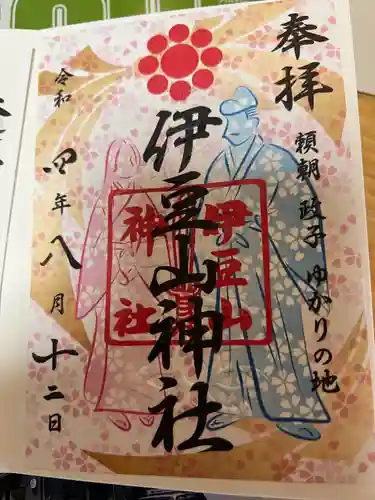 奉拝
頼朝 政子 ゆかりの地
伊豆山神社
伊豆山
神社
令和四年八月十二日